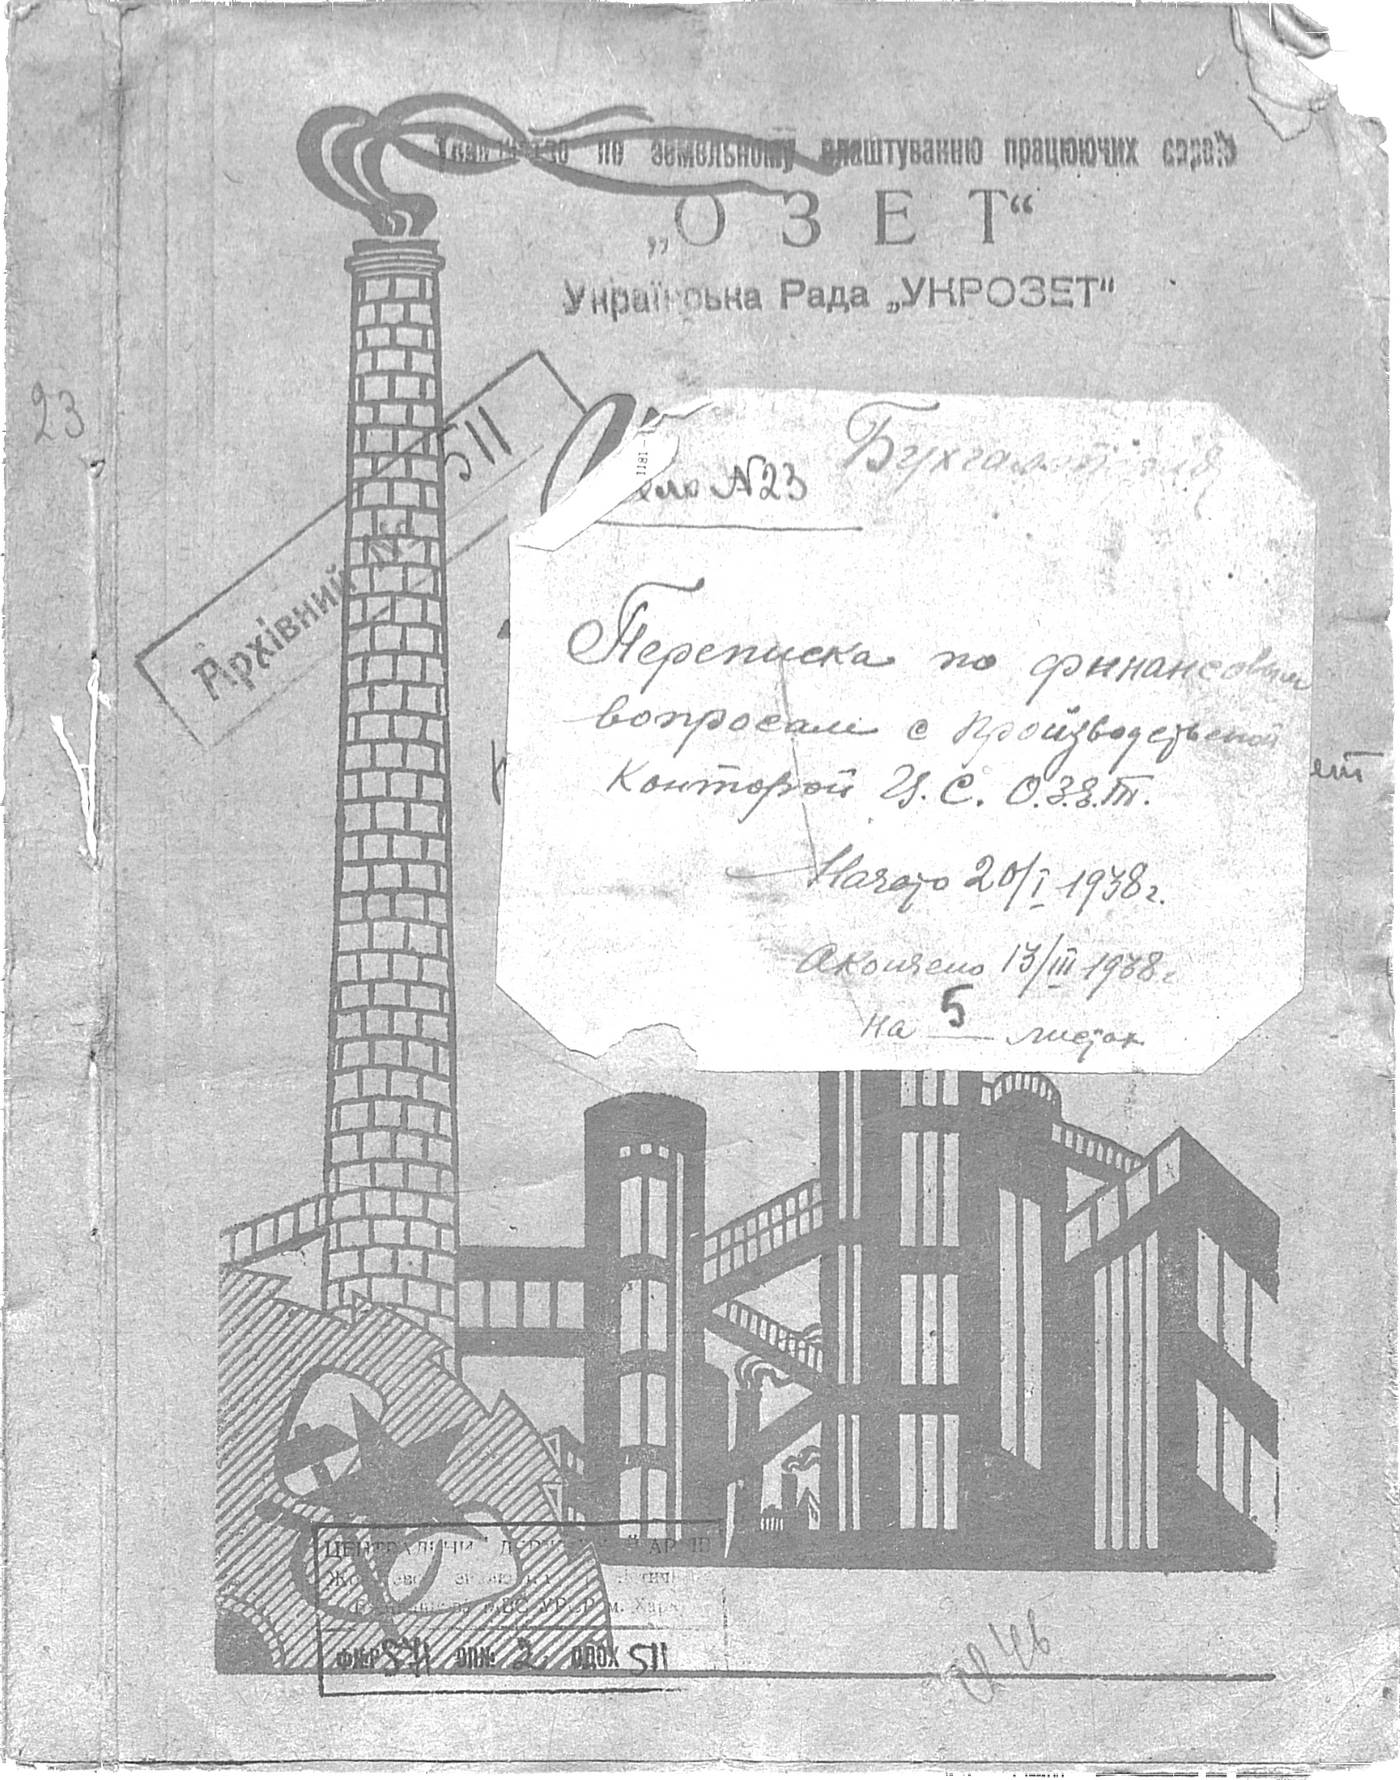 Товариство по земельному влаштуванню працюючих євреїв
„ОЗЕТ“
Українська Рада „УКРОЗЕТ“
23
Архівний № 511
1811
Бухгалтерия
Дело N23
Переписка по финансовым
вопросам с Производственной
Конторой Ц.С. О.З.Е.Т.
Начато 20/I 1938г.
Окончено 13/III 1938г.
на 5 листах
ет
ЦЕНТРАЛЬНИЙ ДЕРЖАВНИЙ АРХІВ
УРСР м. Харк
ФК№Р 8711 ОП№ 2 ОДОХ 511